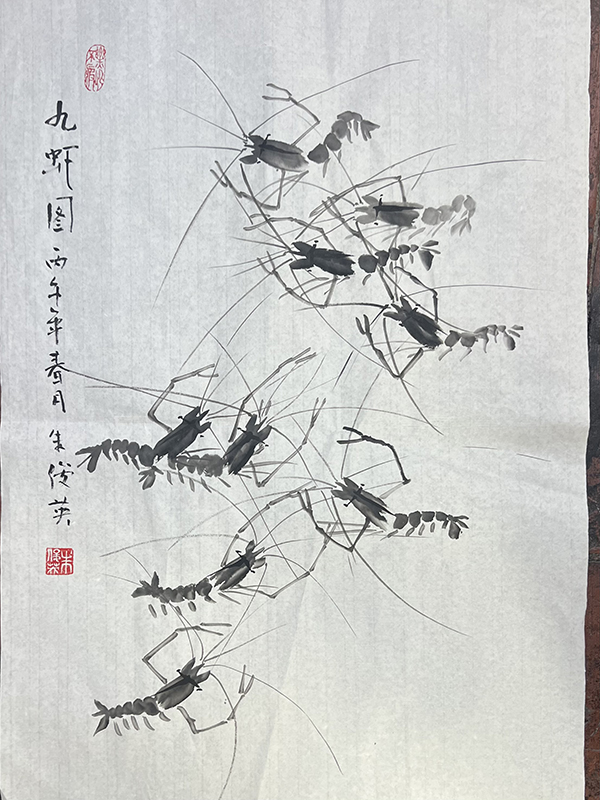 九虾图丙午年春月朱俊英